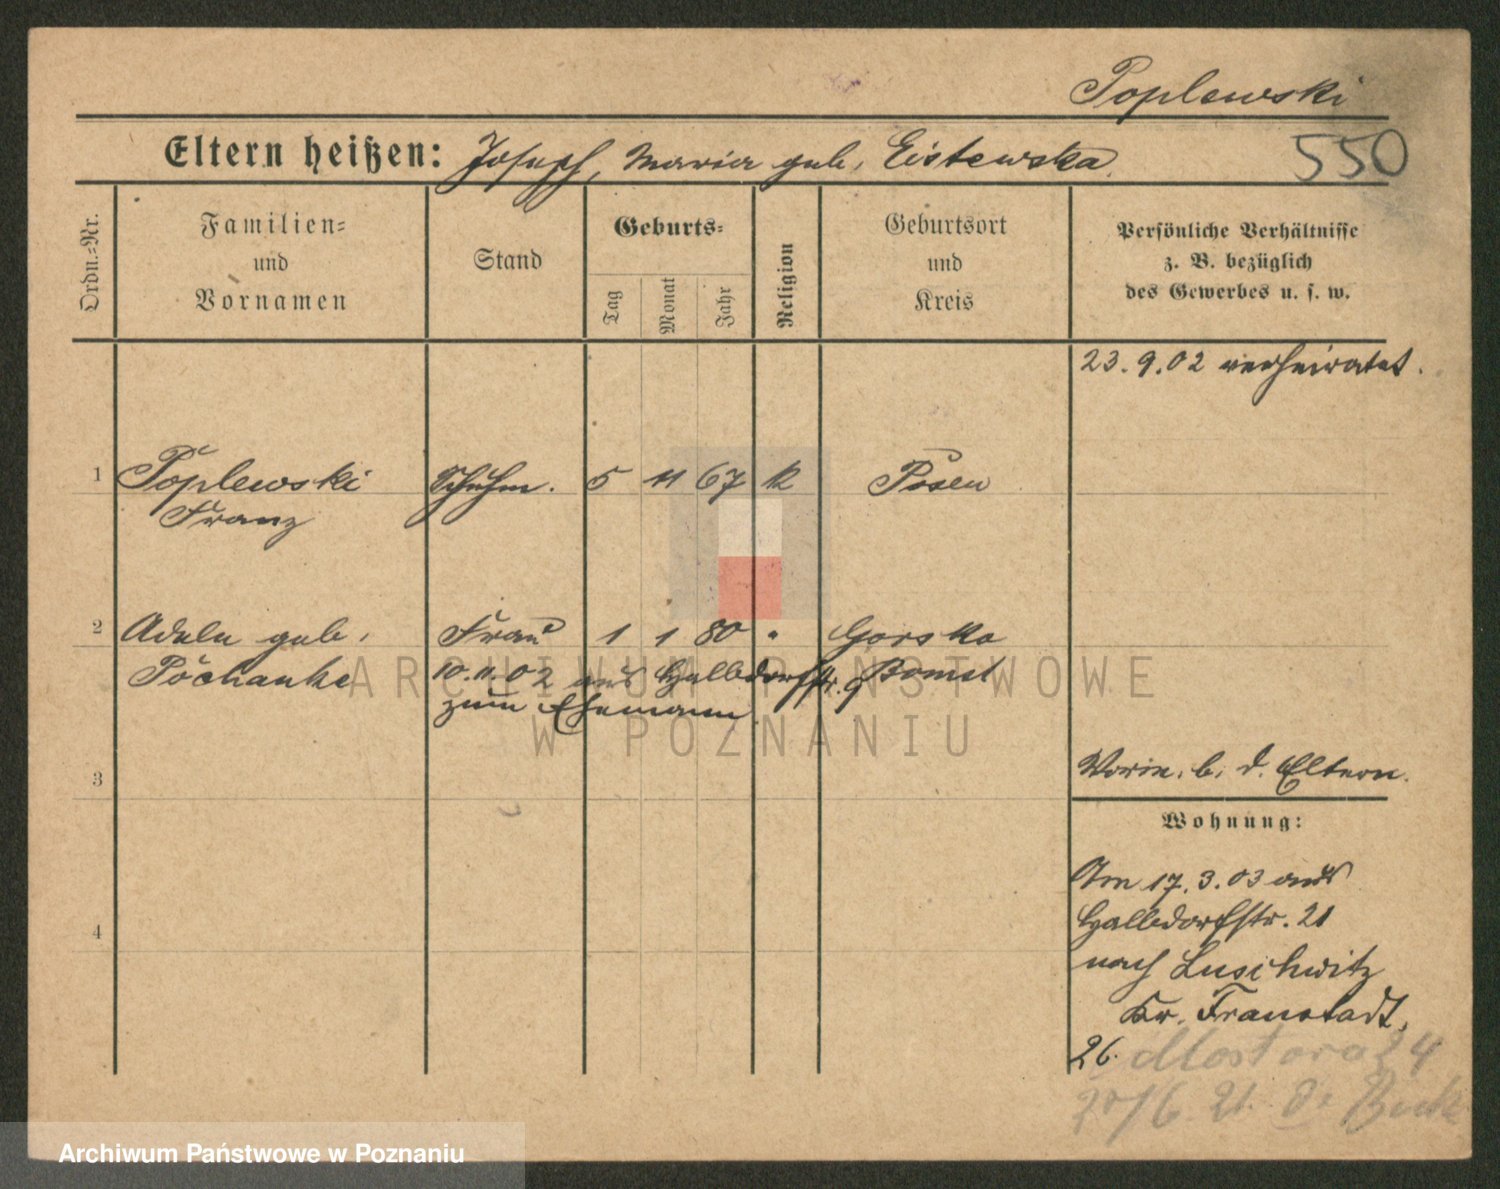 Poplewski
Eltern heißen: Joseph, Maria geb. Eistewska
550
Ordn.-Nr.
Familien- und Vornamen
Stand
Geburts-
Tag
Monat
Jahr
Religion
Geburtsort und Kreis
Persönliche Verhältnisse z. B. bezüglich des Gewerbes u. s. w.
23.9.02 verheiratet.
1 Poplewski Schuhm. 5 11 67 K Posen
Franz
2 Adele geb. Frau 1 1 80 " Gorsko
Pöchanke 10.11.02 aus Halbdorfstr. 9 Bomst
zum Ehemann
3
Vorin. b. d. Eltern.
Wohnung:
Am 17.3.03 aus
Halbdorfstr. 21
4
nach Luschwitz
Kr. Fraustadt.
26.
ARCHIWUM PAŃSTWOWE
W POZNANIU
Archiwum Państwowe w Poznaniu